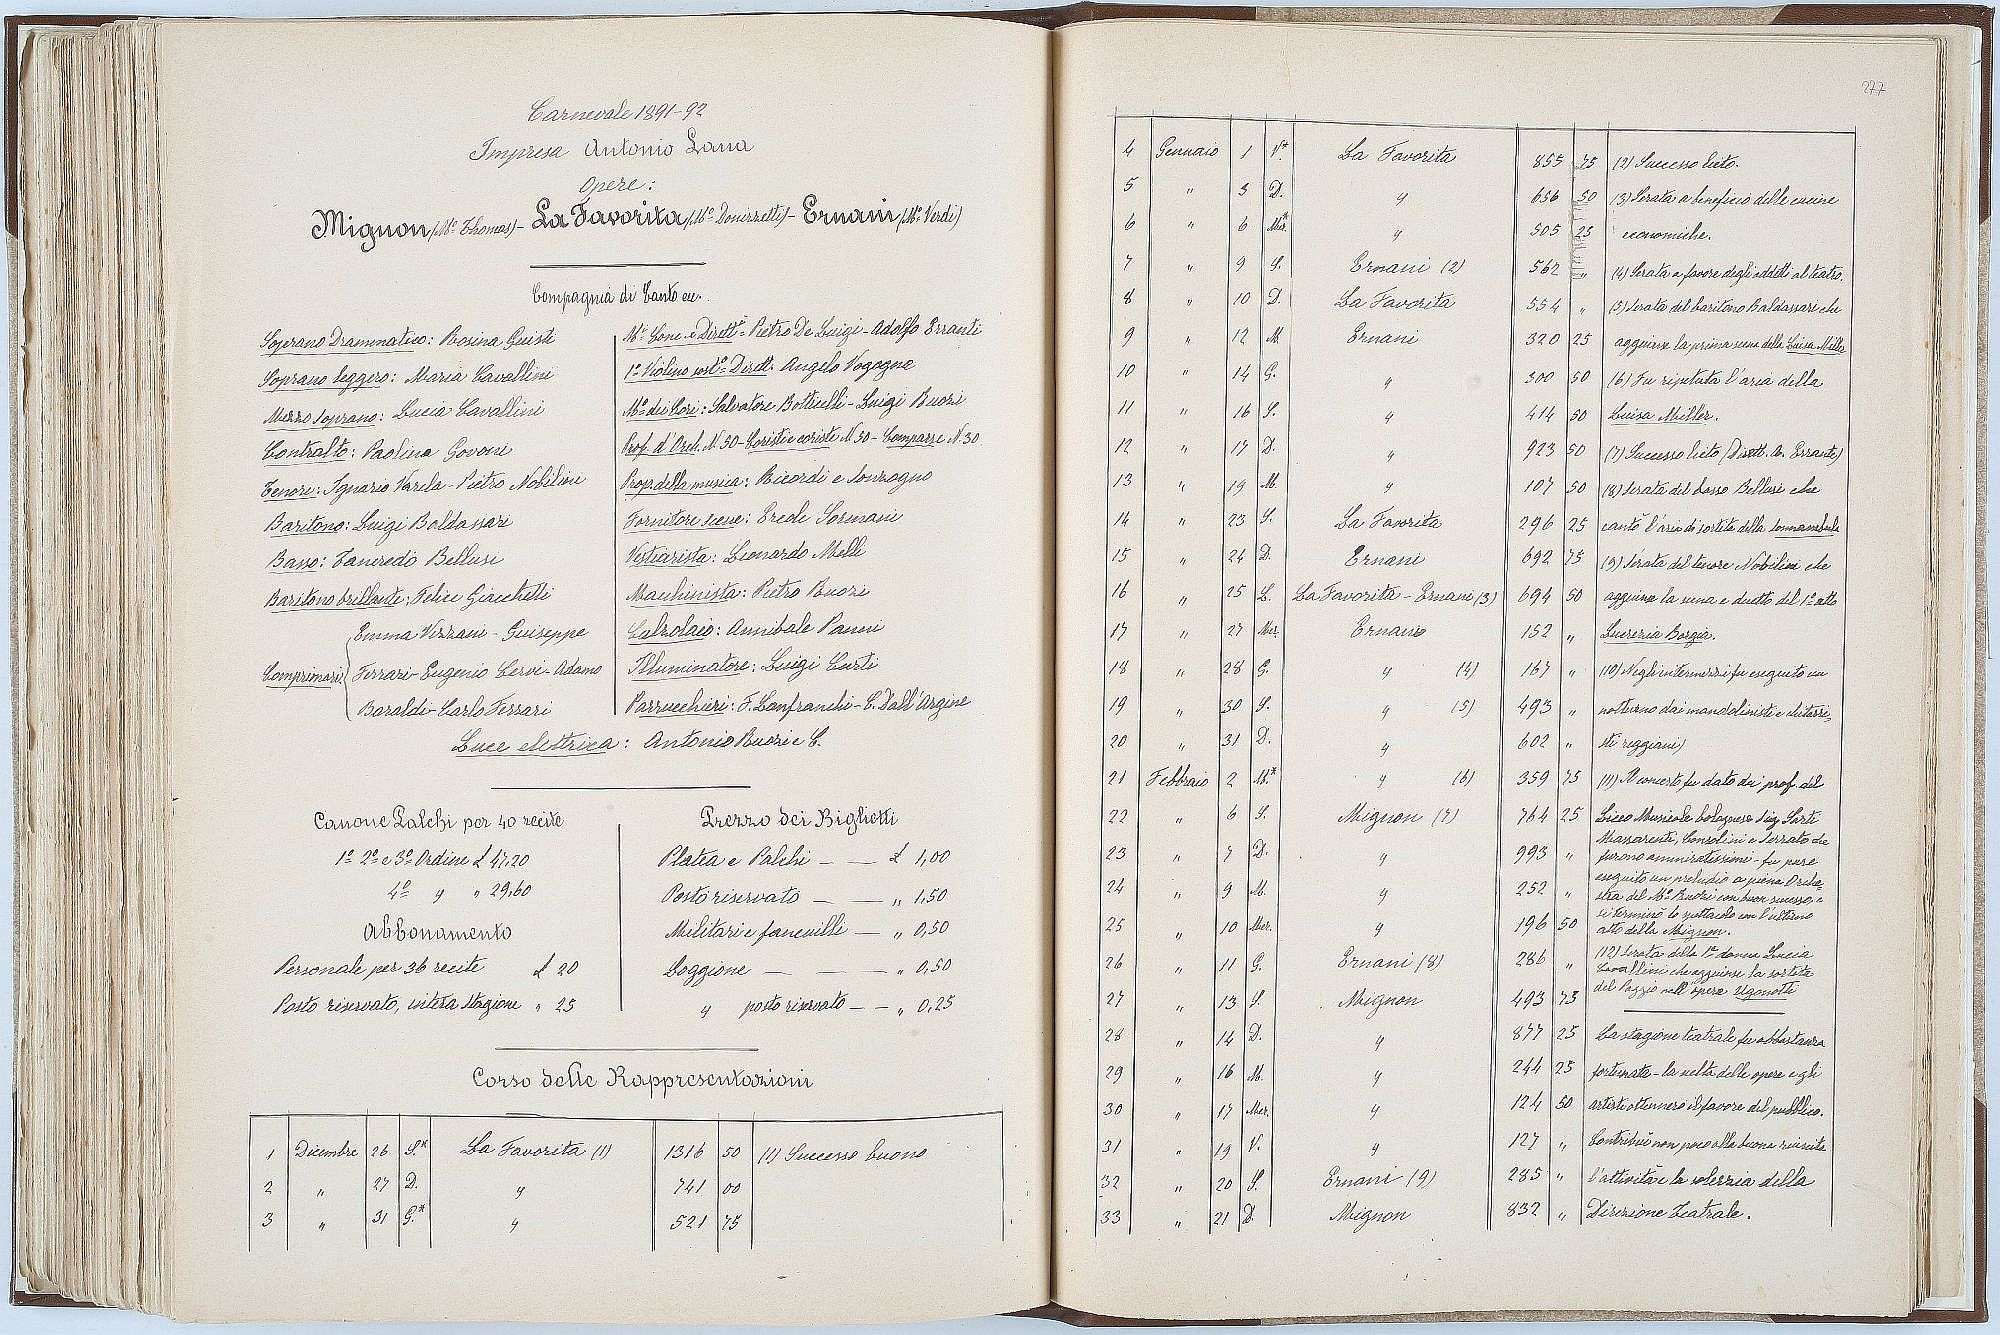 Carnevale 1891-92
Impresa Antonio Lana
Opere:
Mignon (Mº Thomas) - La Favorita (Mº Donizzetti) - Ernani (Mº Verdi)
Compagnia di Canto ecc.
Soprano Drammatico: Rosina Giusti
Soprano leggero: Maria Cavallini
Mezzo soprano: Lucia Cavallini
Contralto: Paolina Govoni
Tenori: Ignazio Varela - Pietro Nobilini
Baritono: Luigi Baldassari
Basso: Tancredo Bellusi
Baritono brillante: Felice Giacchetti
Comprimari { Emma Vizzani - Giuseppe
Ferrari - Eugenio Cervi - Adamo
Baraldi - Carlo Ferrari
Mº Conc. e Dirett.e Pietro De Luigi - Adolfo Erranti
1º Violino sost.º Dirett. Angelo Vogogna
Mº dei Cori: Salvatore Botticelli - Luigi Buozi
Prof. d'Orch. N. 50 - Coristi e coriste N. 50 - Comparse N. 30
Prop. della musica: Ricordi e Sonzogno
Fornitore scene: Erede Sormani
Vestiarista: Leonardo Melli
Macchinista: Pietro Buozi
Calzolaio: Annibale Panni
Illuminatore: Luigi Curti
Parrucchieri: F. Lanfranchi - C. Dall'Argine
Luce elettrica: Antonio Buozi e C.
Canone Palchi per 40 recite
1º 2º e 3º Ordine £ 47,20
4º " " 29,60
Abbonamento
Personale per 36 recite £ 20
Posto riservato, intera stagione " 25
Prezzo dei Biglietti
Platea e Palchi — — £ 1,00
Posto riservato — — " 1,50
Militari e fanciulli — " 0,50
Loggione — — " 0,50
" posto riservato — — " 0,25
Corso delle Rappresentazioni
1 Dicembre 26 S.* La Favorita (1) 1316 50 (1) Successo buono
2 " 27 D. " 741 00
3 " 31 G.* " 521 75
277
4 Gennaio 1 V.* La Favorita 855 75 (2) Successo lieto.
5 " 3 D. " 656 50 (3) Serata a beneficio delle cucine
6 " 6 Mer.* " 505 25 economiche.
7 " 9 S. Ernani (2) 562 " (4) Serata a favore degli addetti al teatro.
8 " 10 D. La Favorita 554 " (5) Serata del baritono Baldassari che
9 " 12 M. Ernani 320 25 aggiunse la prima scena della Luisa Miller
10 " 14 G. " 300 50 (6) Fu ripetuta l'aria della
11 " 16 S. " 414 50 Luisa Miller.
12 " 17 D. " 923 50 (7) Successo lieto (Dirett. A. Erranti)
13 " 19 M. " 107 50 (8) Serata del basso Bellusi che
14 " 23 S. La Favorita 296 25 cantò l'aria di sortita della Sonnambula
15 " 24 D. Ernani 692 75 (9) Serata del tenore Nobilini che
16 " 25 L. La Favorita - Ernani (3) 694 50 aggiunse la scena e duetto del 1º atto
17 " 27 Mer. Ernani 152 " Lucrezia Borgia.
18 " 28 G. " (4) 167 " (10) Negli intermezzi fu eseguito un
19 " 30 S. " (5) 493 " notturno dai mandolinisti e chitarri-
20 " 31 D. " 602 " sti reggiani)
21 Febbraio 2 M.* " (6) 359 75 (11) Il concerto fu dato dai prof. del
22 " 6 S. Mignon (7) 764 25 Liceo Musicale bolognese Sig. Sarti
Massarenti, Consolini e Serrato che
23 " 7 D. " 993 " furono ammiratissimi - fu pure
eseguito un preludio a piena Orche-
24 " 9 M. " 252 " stra del Mº Buozi con buon successo, e
si terminò lo spettacolo con l'ultimo
25 " 10 Mer. " 196 50 atto della Mignon.
26 " 11 G. Ernani (8) 286 " (12) Serata della 1ª donna Lucia
Cavallini che aggiunse la sortita
27 " 13 S. Mignon 493 75 del Paggio nell'opera Ugonotti
28 " 14 D. " 877 25 La stagione teatrale fu abbastanza
29 " 16 M. " 244 25 fortunata - la scelta delle opere e gli
30 " 17 Mer. " 124 50 artisti ottennero il favore del pubblico.
31 " 19 V. " 127 " Contribuì non poco alla buona riuscita
32 " 20 S. Ernani (9) 285 " l'attività e la solerzia della
33 " 21 D. Mignon 832 " Direzione Teatrale.